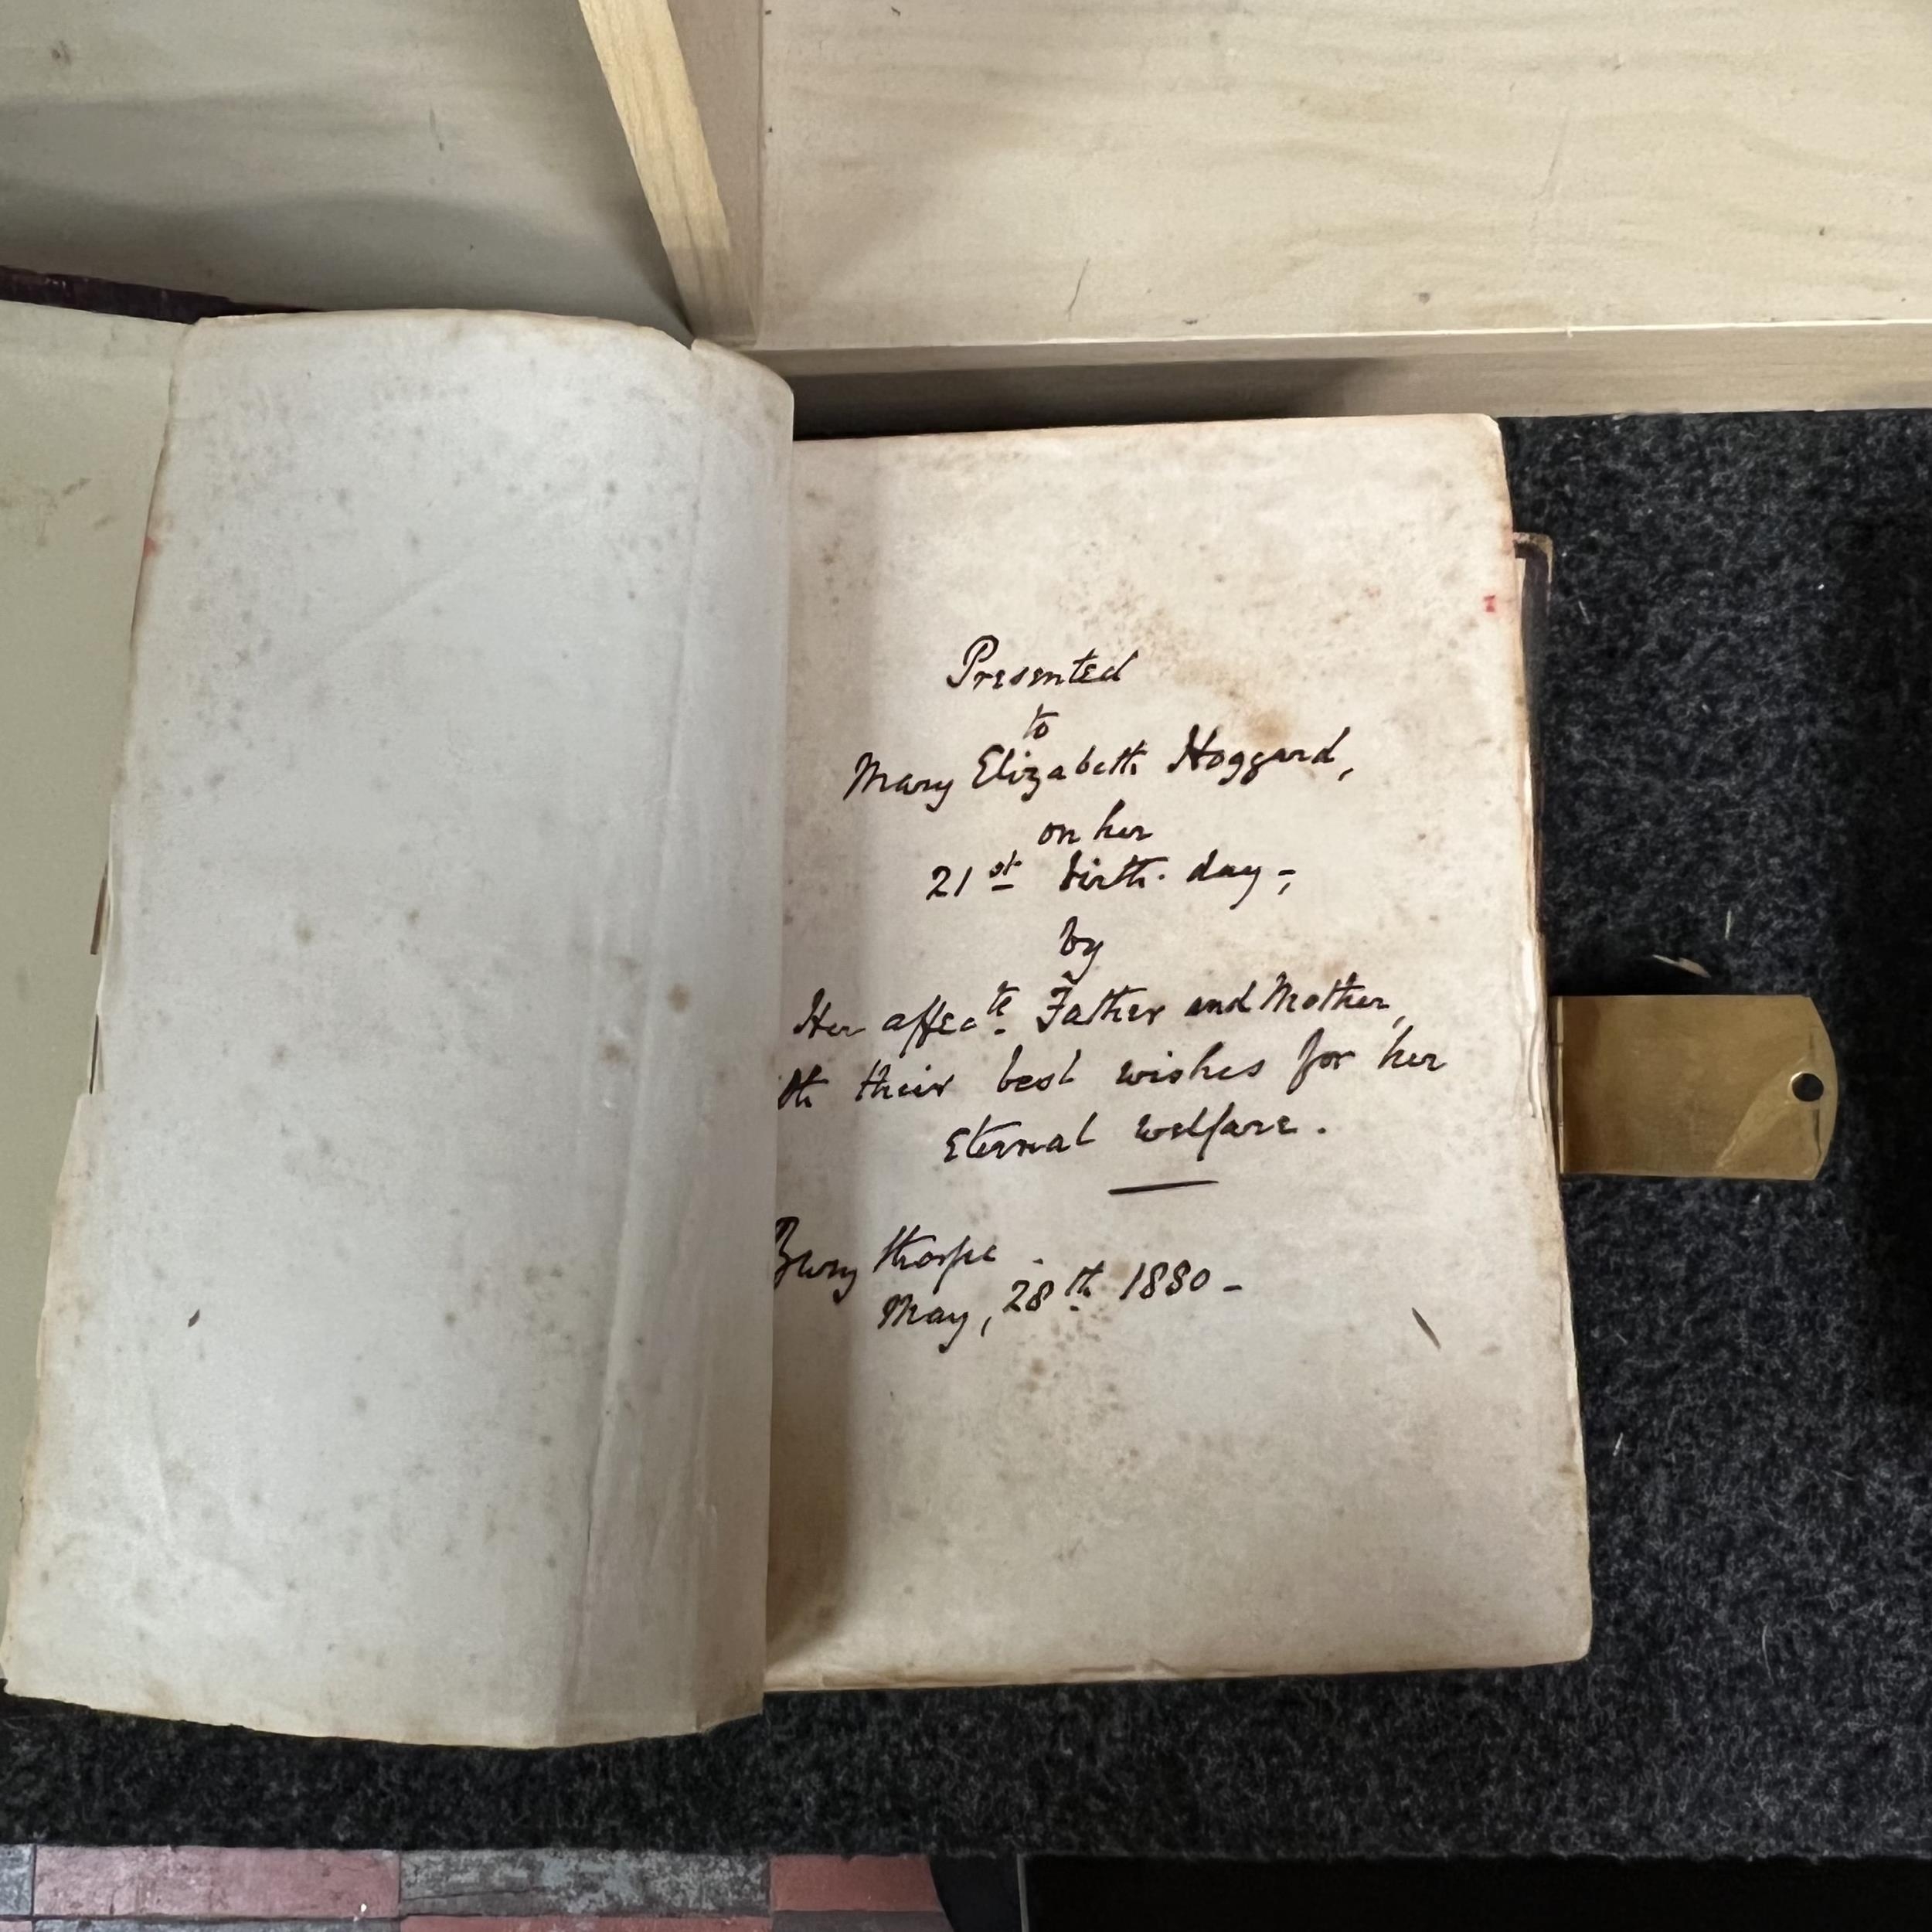 Presented
to
Mary Elizabeth Hoggard,
on her
21st birth-day-,
by
Her affecte. Father and Mother,
th their best wishes for her
Eternal welfare.
Burythorpe
May, 28th 1880-